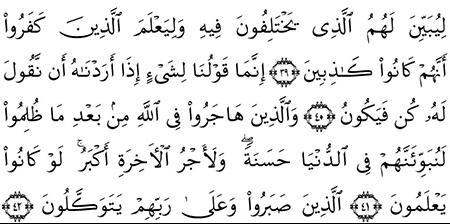 لِيُبَيِّنَ لَهُمُ ٱلَّذِى يَخْتَلِفُونَ فِيهِ وَلِيَعْلَمَ ٱلَّذِينَ كَفَرُوٓا۟
أَنَّهُمْ كَانُوا۟ كَٰذِبِينَ ٣٩ إِنَّمَا قَوْلُنَا لِشَىْءٍ إِذَآ أَرَدْنَٰهُ أَن نَّقُولَ
لَهُۥ كُن فَيَكُونُ ٤٠ وَٱلَّذِينَ هَاجَرُوا۟ فِى ٱللَّهِ مِنۢ بَعْدِ مَا ظُلِمُوا۟
لَنُبَوِّئَنَّهُمْ فِى ٱلدُّنْيَا حَسَنَةً ۖ وَلَأَجْرُ ٱلْءَاخِرَةِ أَكْبَرُ ۚ لَوْ كَانُوا۟
يَعْلَمُونَ ٤١ ٱلَّذِينَ صَبَرُوا۟ وَعَلَىٰ رَبِّهِمْ يَتَوَكَّلُونَ ٤٢